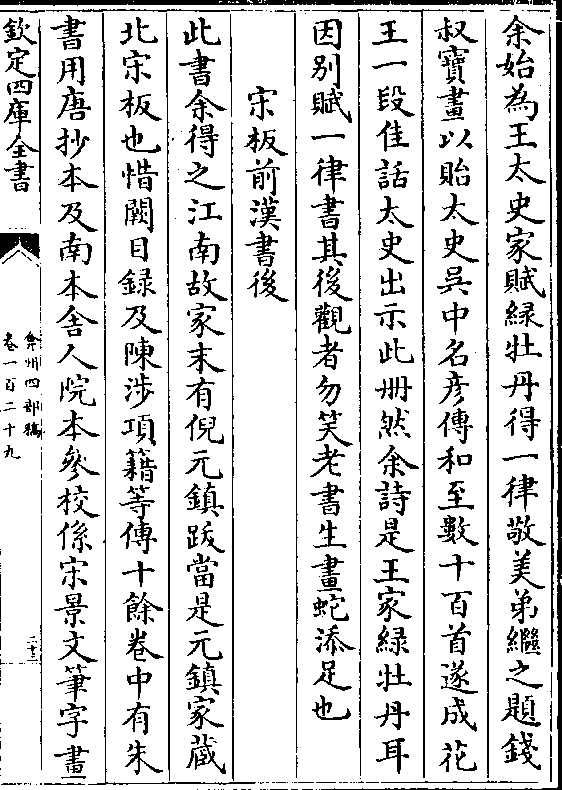 余始為王太史家賦緑牡丹得一律敬美弟繼之題錢
叔寶畫以貽太史呉中名彦傳和至數十百首遂成花
王一段佳話太史出示此冊然余詩是王家緑牡丹耳
因别賦一律書其後觀者勿笑老書生畫蛇添足也
宋板前漢書後
此書余得之江南故家末有倪元鎮跋當是元鎮家蔵
北宋板也惜闕目録及陳涉項籍等傳十餘卷中有朱
書用唐抄本及南本舎人院本參校係宋景文筆字畫
欽定四庫全書
弇州四部稿
卷一百二十九
二十三